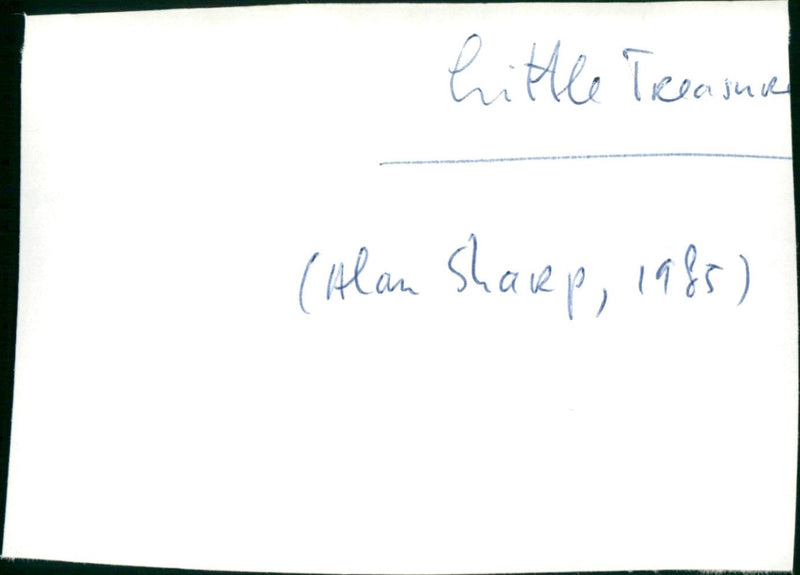 Little Treasure
(Alan Sharp, 1985)